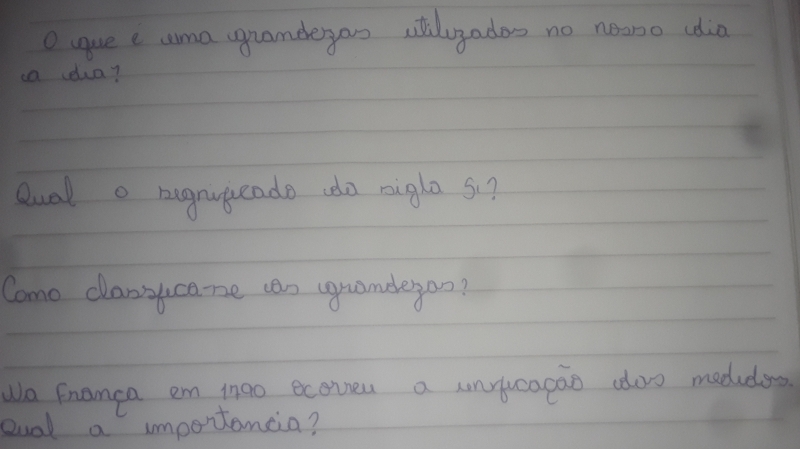 O que é uma grandezas utilizados no nosso dia
a dia?
Qual o significado da sigla SI?
Como classifica-se as grandezas?
Na França em 1790 ocorreu a unificação das medidas.
Qual a importancia?